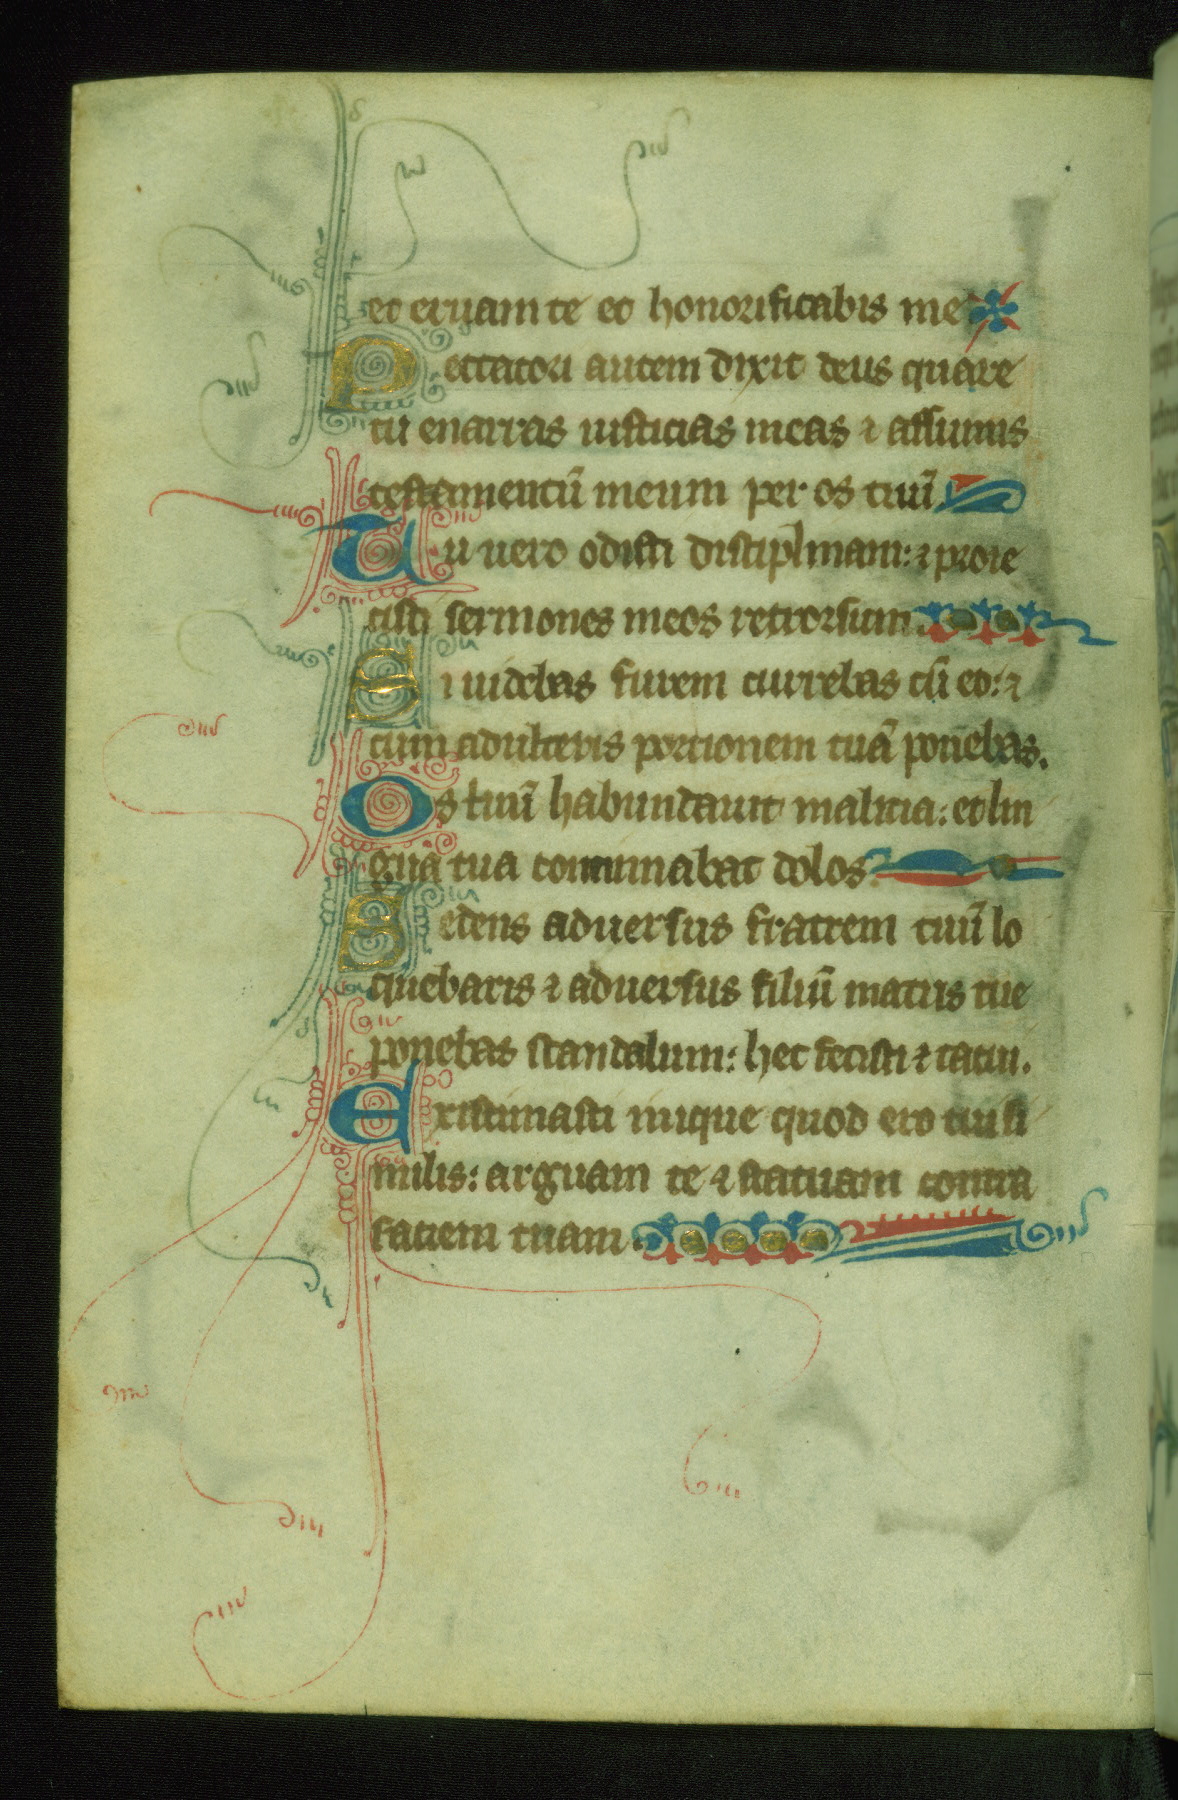 et eruam te et honorificabis me
Peccatori autem dixit deus quare
tu enarras iusticias meas ⁊ assumis
testamentũ meum per os tuũ
Tu uero odisti disciplinam: ⁊ proie
cisti sermones meos retrorsum.
Si uidebas furem currebas cũ eo: ⁊
cum adulteris portionem tuã ponebas.
Os tuũ habundauit malicia: et lin
gua tua concinnabat dolos.
Sedens aduersus fratrem tuũ lo
quebaris ⁊ aduersus filiũ matris tue
ponebas scandalum: hec fecisti ⁊ tacui.
Existimasti inique quod ero tui si
milis: arguam te ⁊ statuam contra
faciem tuam.